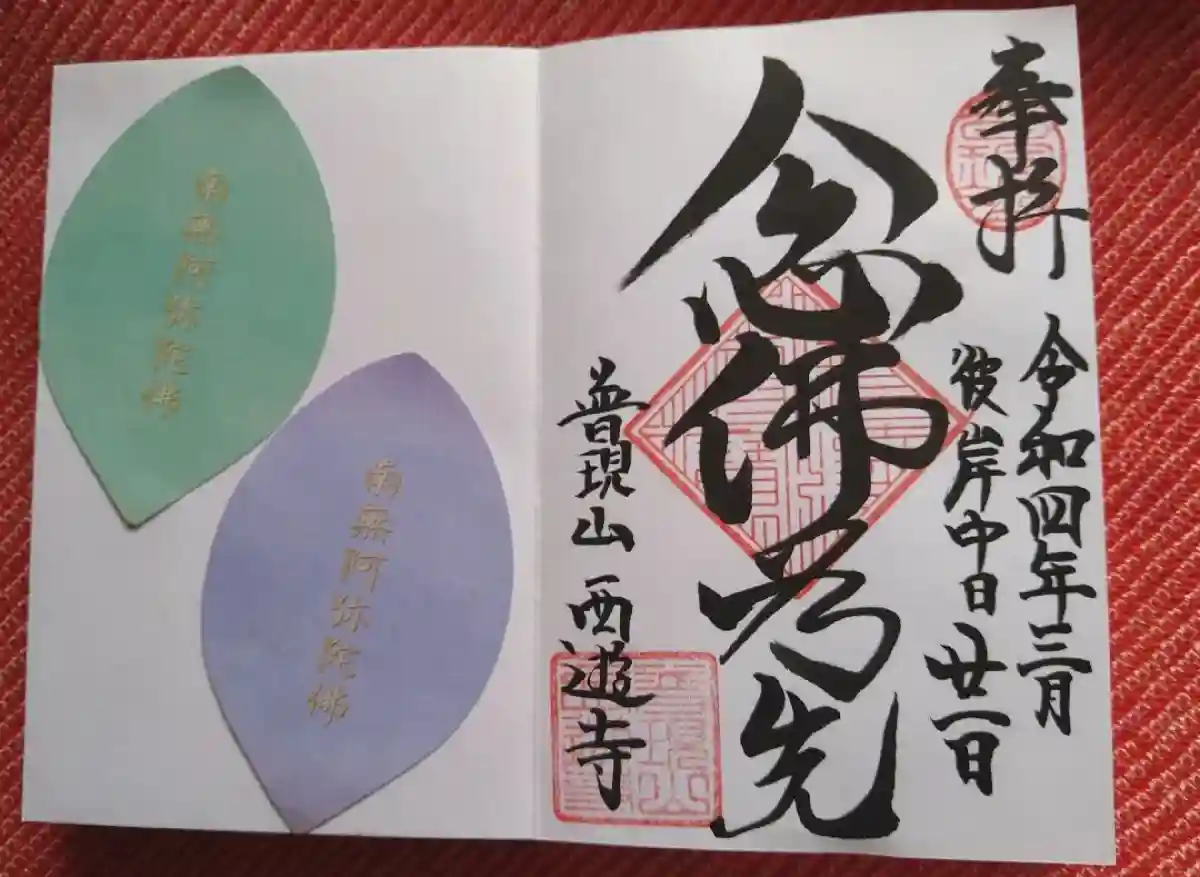 奉拝
令和四年三月
彼岸中日廿一日
念佛為先
普現山 西遊寺
南無阿弥陀佛
南無阿弥陀佛